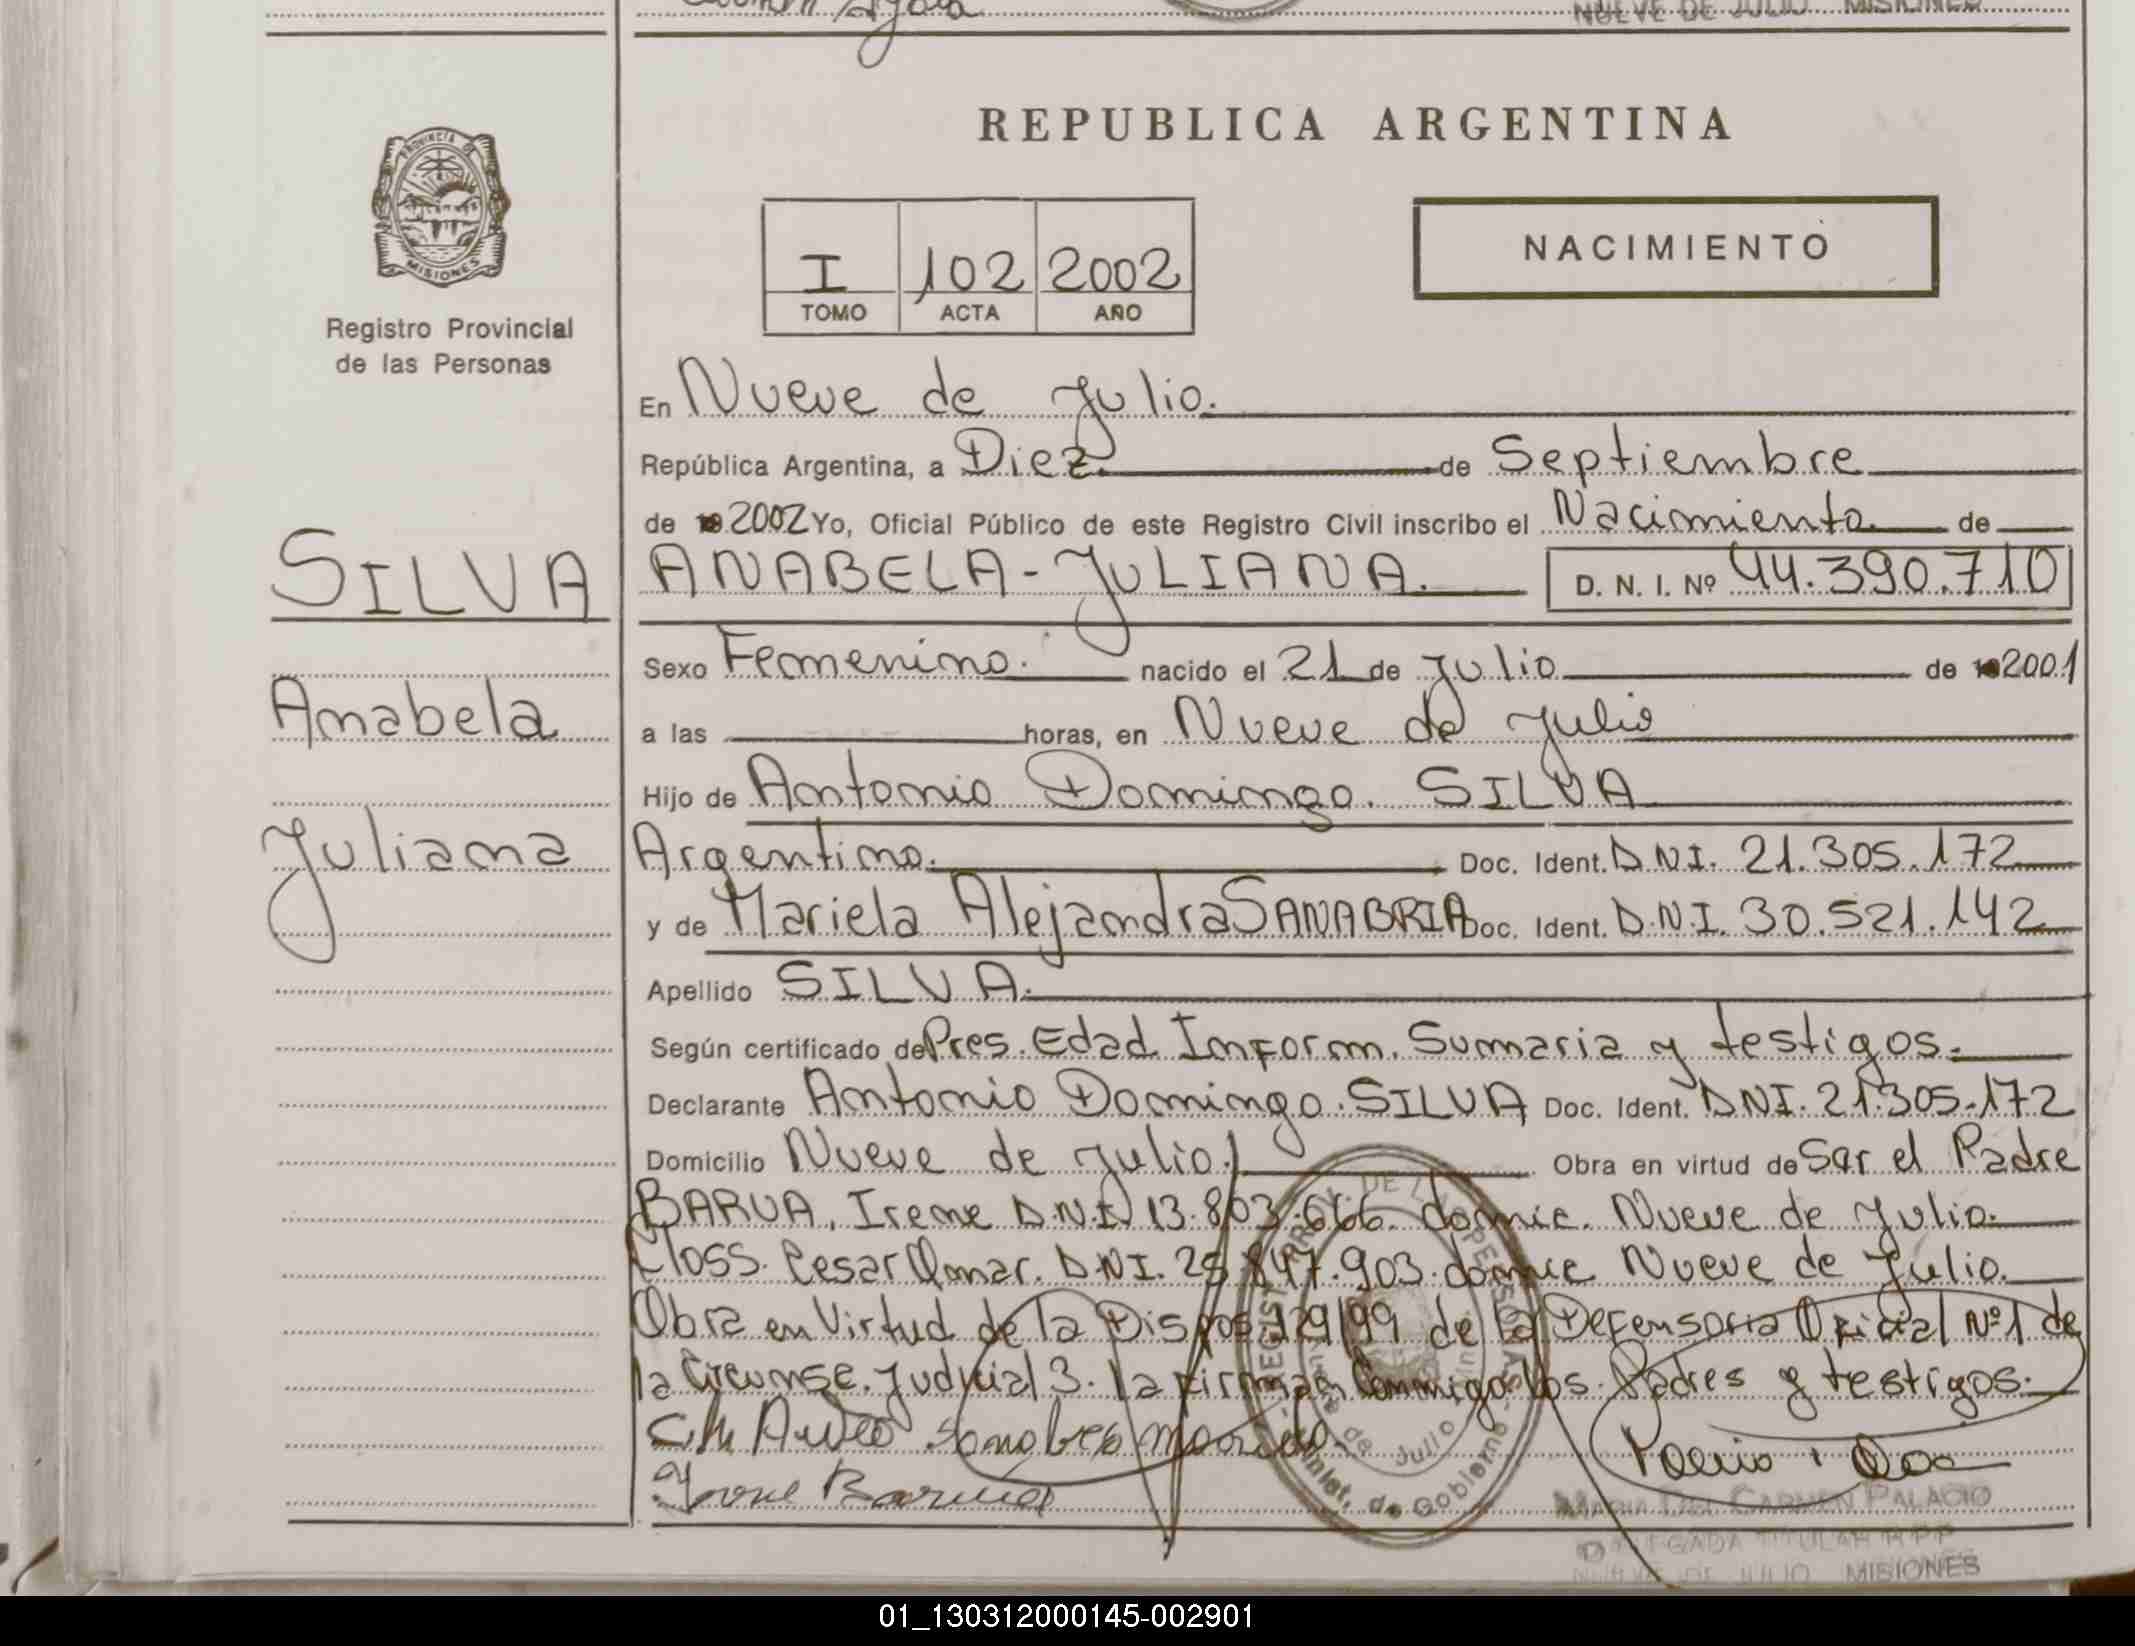 NUEVE DE JULIO MISIONES
REPUBLICA ARGENTINA
PROVINCIA DE
MISIONES
Registro Provincial
de las Personas
I 102 2002
TOMO ACTA AÑO
NACIMIENTO
En Nueve de Julio.
República Argentina, a Diez. de Septiembre
de 2002 Yo, Oficial Público de este Registro Civil inscribo el Nacimiento de
SILVA
Anabela
Juliana
ANABELA-JULIANA. D. N. I. Nº 44.390.710
Sexo Femenino. nacido el 21 de Julio de 2001
a las horas, en Nueve de Julio
Hijo de Antonio Domingo. SILVA
Argentino. Doc. Ident. D.N.I. 21.305.172
y de Mariela Alejandra SANABRIA Doc. Ident. D.N.I. 30.521.142
Apellido SILVA.
Según certificado de Pres. Edad Inform. Sumaria y testigos.
Declarante Antonio Domingo. SILVA Doc. Ident. DNI. 21.305.172
Domicilio Nueve de Julio. Obra en virtud de Ser el Padre
BARUA, Irene D.N.I. 13.803.666. domic. Nueve de Julio.
Closs. Cesar Omar. D.N.I. 25.847.903. domic Nueve de Julio.
Obra en Virtud de la Dispos 129/99 de la Defensoria Oficial Nº1 de
la Circunsc. Judicial 3. la firman Conmigo los Padres y testigos.
Irene Barua
MARIA DEL CARMEN PALACIO
DELEGADA TITULAR R.P.P.
NUEVE DE JULIO MISIONES
01_130312000145-002901